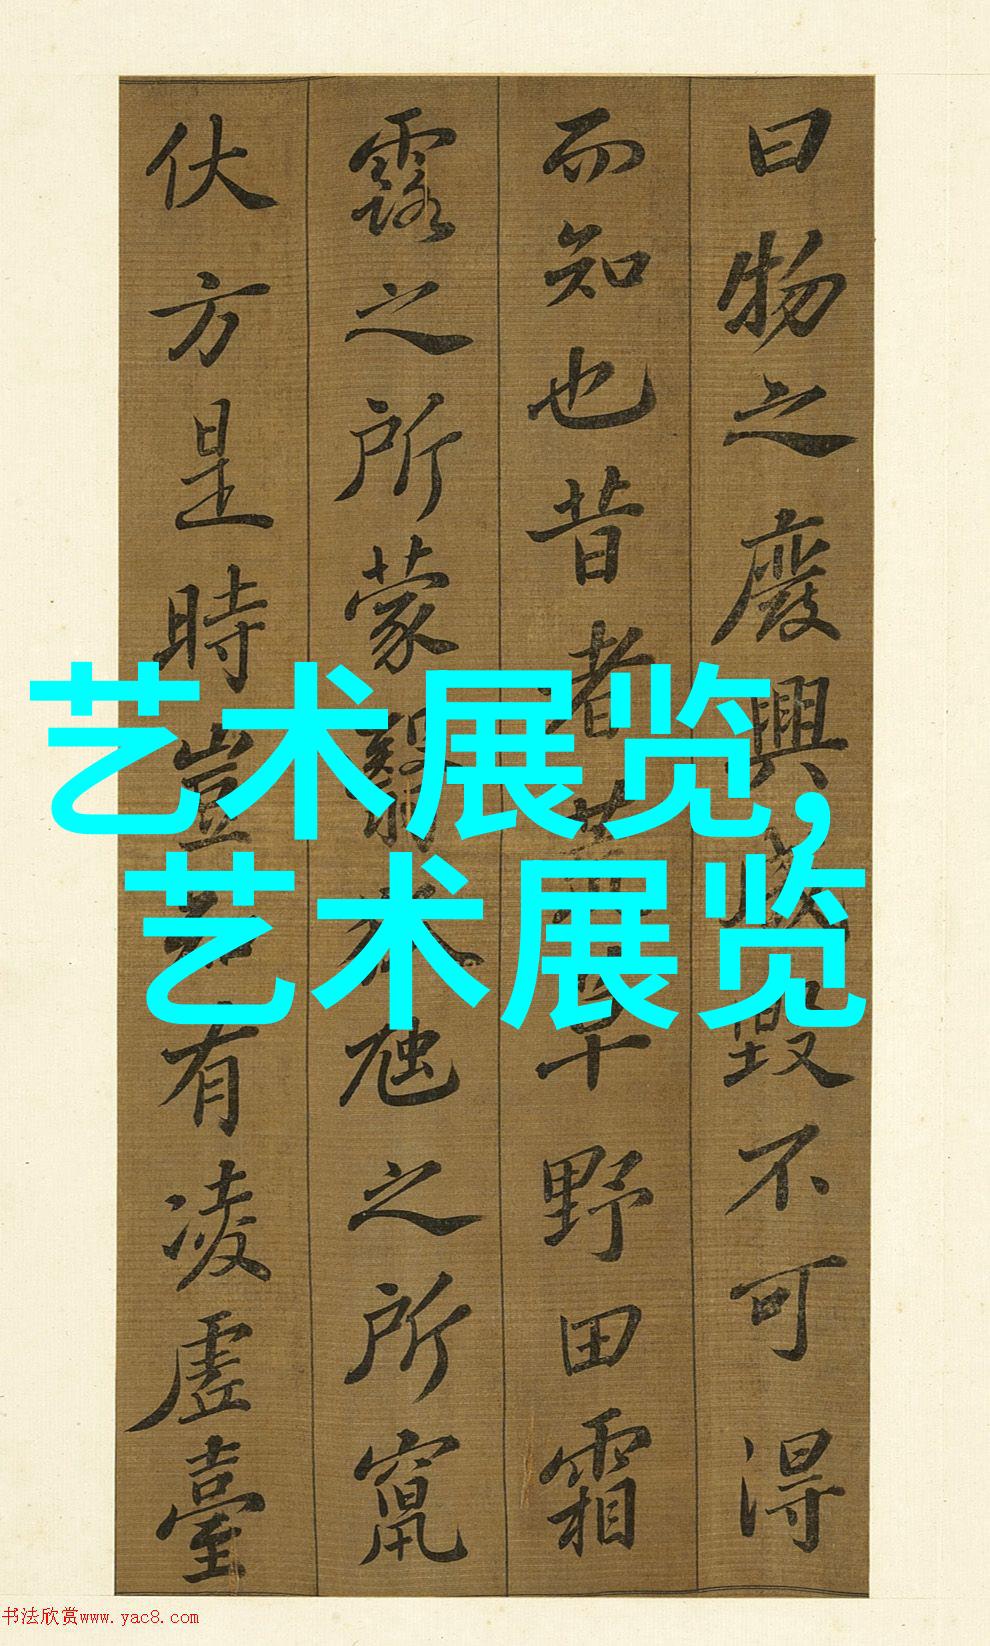 曰物之廢興成毀不可得
而知也昔者荒草野田霜
露之所蒙翳狐虺之所竄
伏方是時豈知有凌虛臺
艺术展览,
艺术展览
书法欣赏www.yac8.com